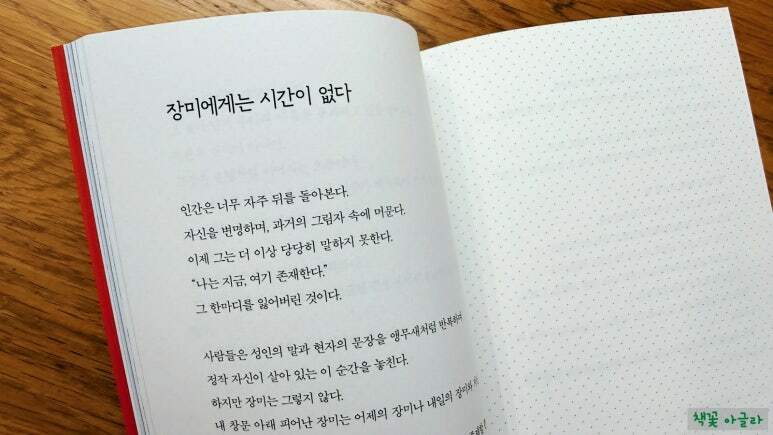 장미에게는 시간이 없다
인간은 너무 자주 뒤를 돌아본다.
자신을 변명하며, 과거의 그림자 속에 머문다.
이제 그는 더 이상 당당히 말하지 못한다.
“나는 지금, 여기 존재한다.”
그 한마디를 잃어버린 것이다.
사람들은 성인의 말과 현자의 문장을 앵무새처럼 반복하며
정작 자신이 살아 있는 이 순간을 놓친다.
하지만 장미는 그렇지 않다.
내 창문 아래 피어난 장미는 어제의 장미나 내일의 장미와
책꽃 아글라